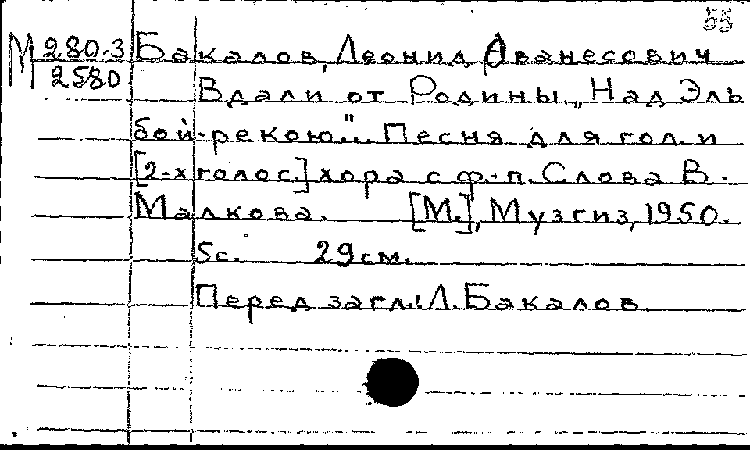 55
М 280-3
2580
Бакалов, Леонид Ованесович
Вдали от Родины „Над Эль
бой-рекою"... Песня для гол. и
[2-х голос.] хора с ф.-п. Слова В.
Малкова. [М.], Музгиз, 1950.
5с. 29см.
Перед загл.: Л. Бакалов